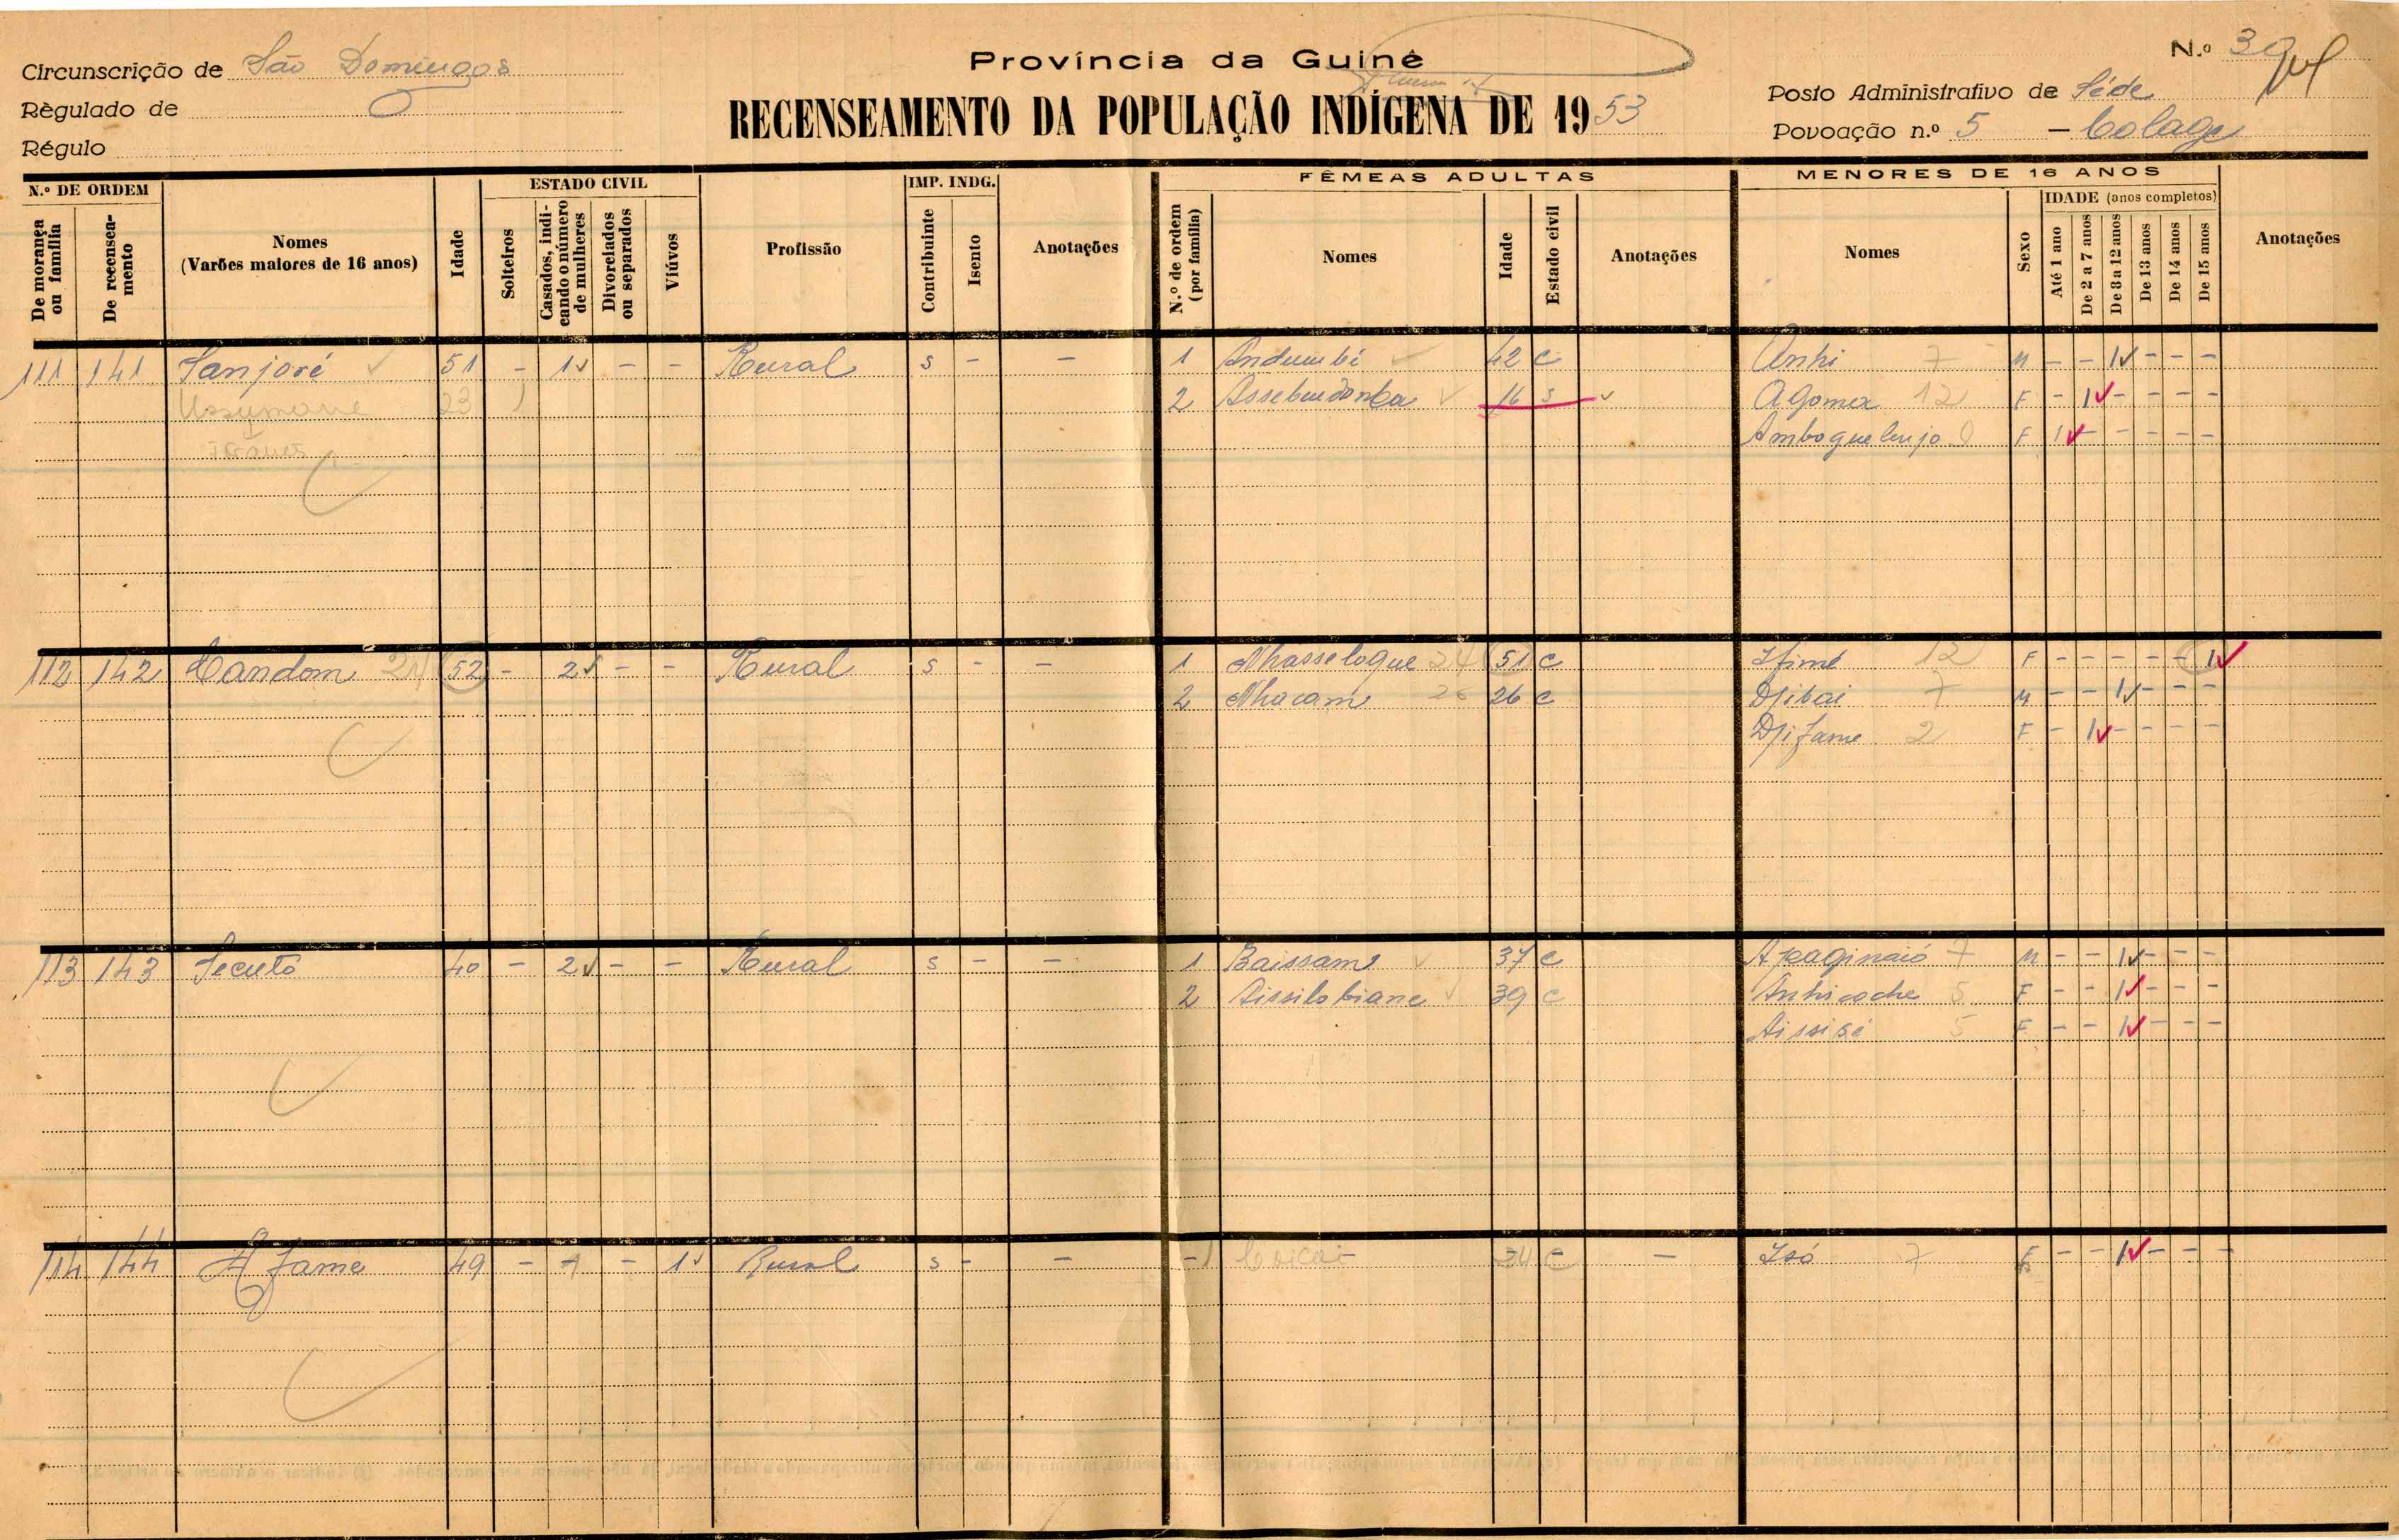 Província da Guiné
RECENSEAMENTO DA POPULAÇÃO INDÍGENA DE 1953
Circunscrição de São Domingos
Règulado de
Régulo
N.º 39
Posto Administrativo de Séde
Povoação n.º 5 – Colage
N.º DE ORDEM
De morança ou família
De recenseamento
Nomes
(Varões maiores de 16 anos)
Idade
ESTADO CIVIL
Solteiros
Casados, indicando o número de mulheres
Divorciados ou separados
Viúvos
Profissão
IMP. INDG.
Contribuinte
Isento
Anotações
FÊMEAS ADULTAS
N.º de ordem (por família)
Nomes
Idade
Estado civil
Anotações
MENORES DE 16 ANOS
Nomes
Sexo
IDADE (anos completos)
Até 1 ano
De 2 a 7 anos
De 8 a 12 anos
De 13 anos
De 14 anos
De 15 anos
Anotações
111 141 Sanjoré 51 - 1 - - Rural s - - 1 Andumbi 42 c Anhi 7 M - - 1 - - -
Ussumane 23 2 16 s Agoma 12 F - 1 - - - -
F 1 - - - - -
112 142 Candom 21 52 - 2 - - Rural s - - 1 Nhasseloque 24 51 c Ifimé 12 F - - - - - 1
2 Nhacam 26 26 c Djibai 7 M - - 1 - - -
Djifame 2 F - 1 - - - -
113 143 Secuto 40 - 2 - - Rural s - - 1 Baissame 37 c Apaginaió 7 M - - 1 - - -
2 Aissilobiane 39 c Anhicoche 5 F - - 1 - - -
Aissisé 5 F - - 1 - - -
114 144 Afame 49 - 1 - 1 Rural s - - - 1 34 c - Isó 7 F - - 1 - - -